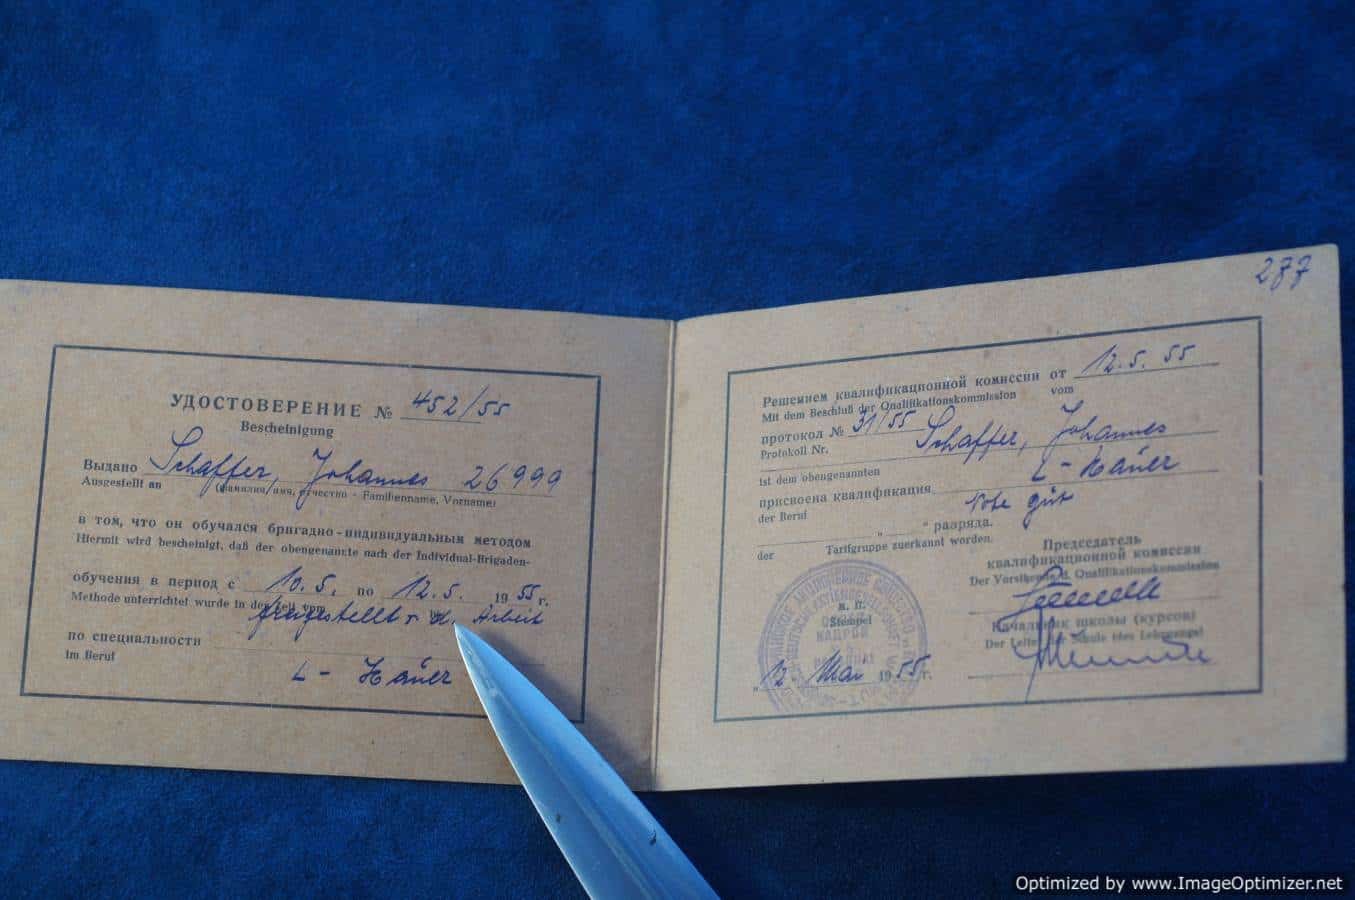 УДОСТОВЕРЕНИЕ № 452/55
Bescheinigung
Выдано Schaffer, Johannes 26999
Ausgestellt an (фамилия/имя, отчество - Familienname, Vorname)
в том, что он обучался бригадно-индивидуальным методом
Hiermit wird bescheinigt, daß der obengenannte nach der Individual-Brigaden-
обучения в период с 10.5. по 12.5. 1955г.
Methode unterrichtet wurde in der Zeit vom
freigestellt v. d. Arbeit
по специальности
im Beruf
L - Häuer
277
Решением квалификационной комиссии от 12.5.55
Mit dem Beschluß der Qualifikationskommission vom
протокол № 31/55 Schaffer, Johannes
Protokoll Nr.
ist dem obengenannten
присвоена квалификация L - Häuer
der Beruf Note gut
„ “ разряда.
der Tarifgruppe zuerkannt worden.
Председатель
квалификационной комиссии
Der Vorsitzende d. Qualifikationskommission
м. п.
Stempel
КАДРОВ
Начальник школы (курсов)
Der Leiter der Schule (des Lehrgangs)
„12. Mai 1955г.
Optimized by www.ImageOptimizer.net